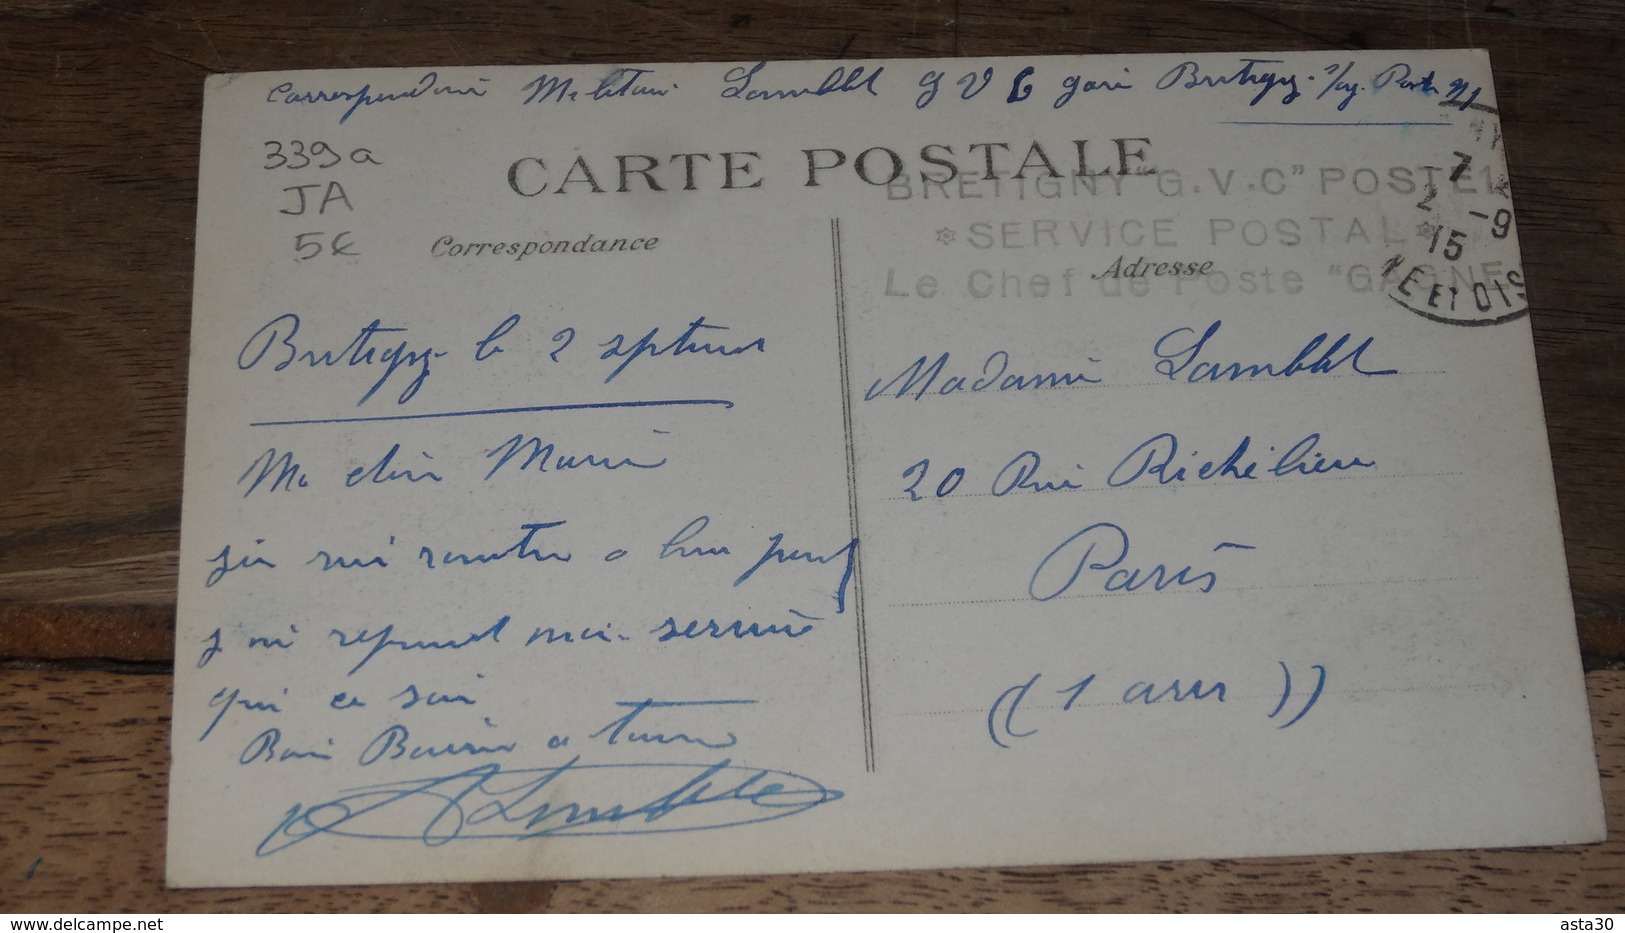 Correspondance Militaire Lamblet G V C gare Bretigny s/org. Poste N1
339a
JA
5€
CARTE POSTALE
BRETIGNY "G.V.C" POSTE 1
*SERVICE POSTAL*
Le Chef de Poste "GAGNE
7
2 -9
15
NE ET OIS
Correspondance
Adresse
Bretigny le 2 septembre
Ma chère Marie
je sui rentre a bon port
j ai reprend moi service
qui ce soir
Bon Baisé a tous
Lamblet
Madame Lamblet
20 Rue Richelieu
Paris
((1 arr))
delcampe.net
asta30